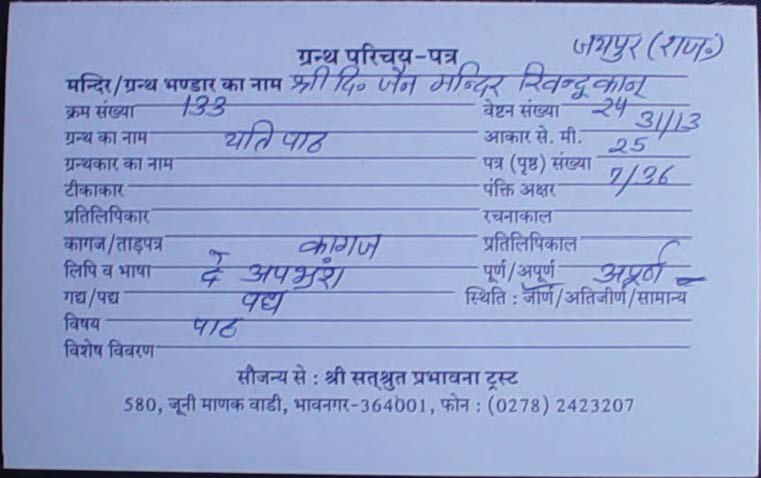 ग्रन्थ परिचय-पत्र जयपुर (राज०)
मन्दिर/ग्रन्थ भण्डार का नाम श्री दि० जैन मन्दिर
क्रम संख्या 133 वेष्टन संख्या 24
ग्रन्थ का नाम यति पाठ आकार से. मी. 31/13
ग्रन्थकार का नाम पत्र (पृष्ठ) संख्या 25
टीकाकार पंक्ति अक्षर 7/36
प्रतिलिपिकार रचनाकाल
कागज/ताड़पत्र कागज प्रतिलिपिकाल
लिपि व भाषा दे अपभ्रंश पूर्ण/अपूर्ण अपूर्ण
गद्य/पद्य पद्य स्थिति : जीर्ण/अतिजीर्ण/सामान्य
विषय पाठ
विशेष विवरण
सौजन्य से : श्री सत्श्रुत प्रभावना ट्रस्ट
580, जूनी माणक वाडी, भावनगर-364001, फोन : (0278) 2423207